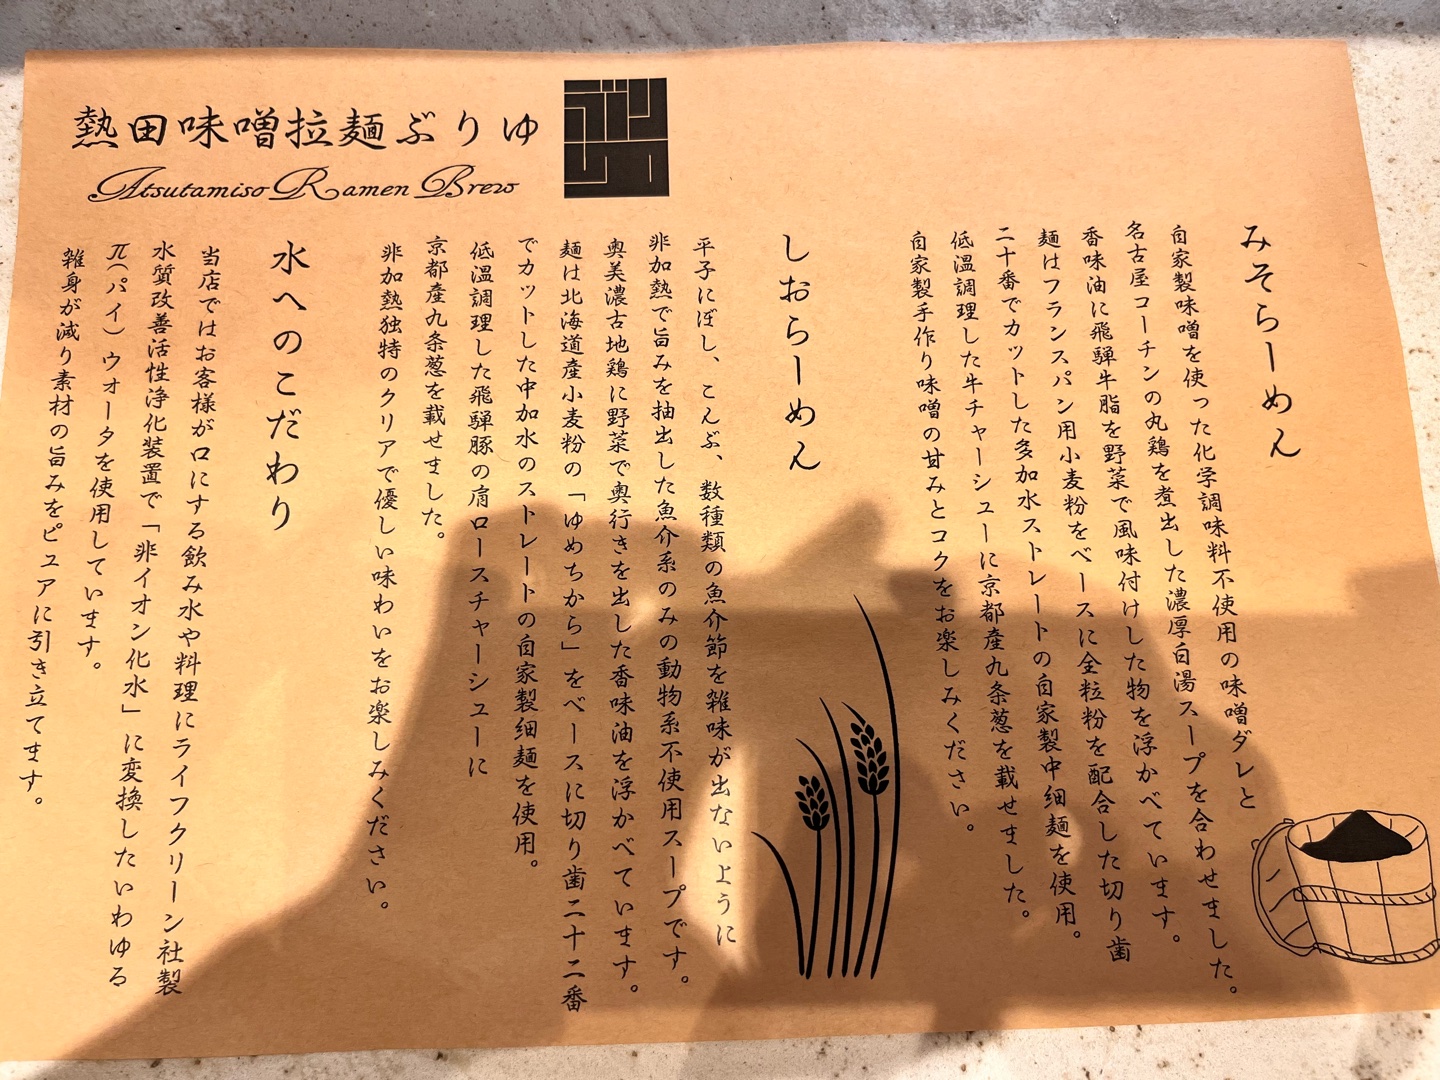 熱田味噌拉麺ぶりゅ
Atsutamiso Ramen Brew
みそらーめん
自家製味噌を使った化学調味料不使用の味噌ダレと
名古屋コーチンの丸鶏を煮出した濃厚白湯スープを合わせました。
香味油に飛騨牛脂を野菜で風味付けした物を浮かべています。
麺はフランスパン用小麦粉をベースに全粒粉を配合した切り歯
二十番でカットした多加水ストレートの自家製中細麺を使用。
低温調理した牛チャーシューに京都産九条葱を載せました。
自家製手作り味噌の甘みとコクをお楽しみください。
しおらーめん
平子にぼし、こんぶ、数種類の魚介節を雑味が出ないように
非加熱で旨みを抽出した魚介系のみの動物系不使用スープです。
奥美濃古地鶏に野菜で奥行きを出した香味油を浮かべています。
麺は北海道産小麦粉の「ゆめちから」をベースに切り歯二十二番
でカットした中加水のストレートの自家製細麺を使用。
低温調理した飛騨豚の肩ロースチャーシューに
京都産九条葱を載せました。
非加熱独特のクリアで優しい味わいをお楽しみください。
水へのこだわり
当店ではお客様が口にする飲み水や料理にライフクリーン社製
水質改善活性浄化装置で「非イオン化水」に変換したいわゆる
π(パイ)ウォータを使用しています。
雑身が減り素材の旨みをピュアに引き立てます。